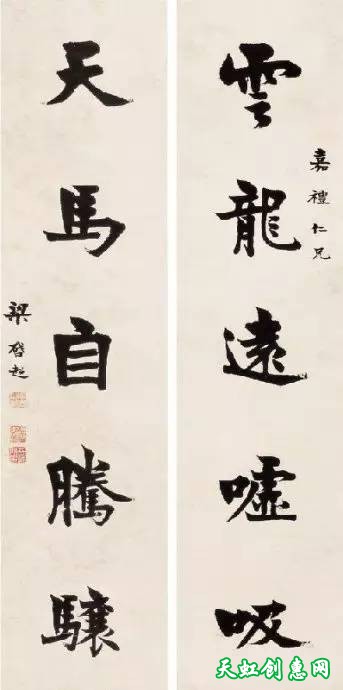 雲龍遠嘘吸
嘉禮仁兄
天馬自騰驤
梁啓超
天虹创意网